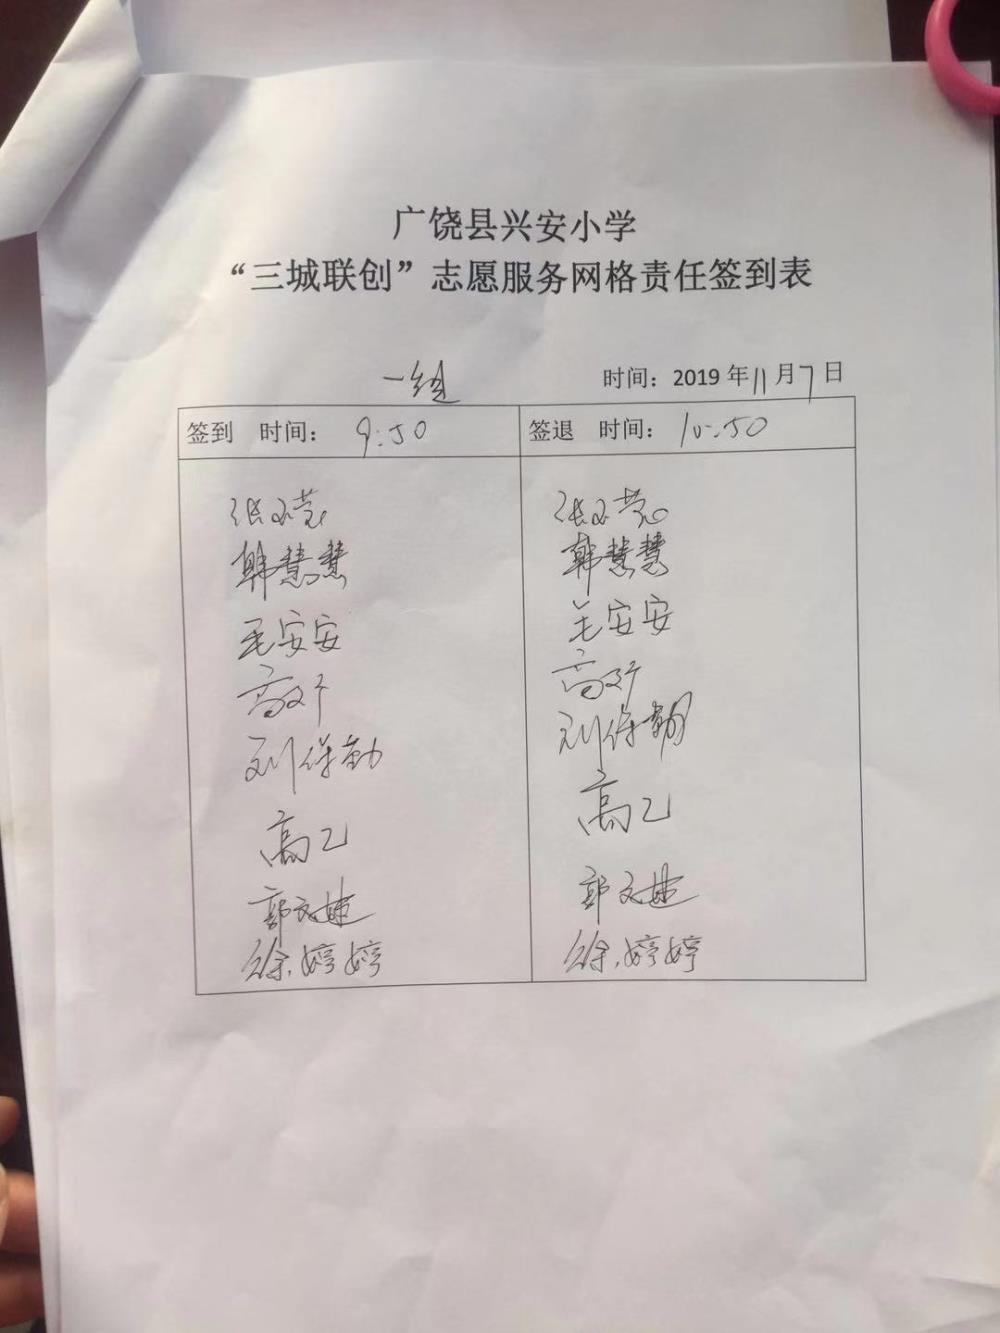 广饶县兴安小学
“三城联创”志愿服务网格责任签到表
一组 时间：2019年11月7日
签到 时间： 9:50 签退 时间： 10:50
韩慧慧 韩慧慧
毛安安 毛安安
高 高
刘保勤 刘保
高乙 高乙
郭文婕 郭文婕
徐婷婷 徐婷婷